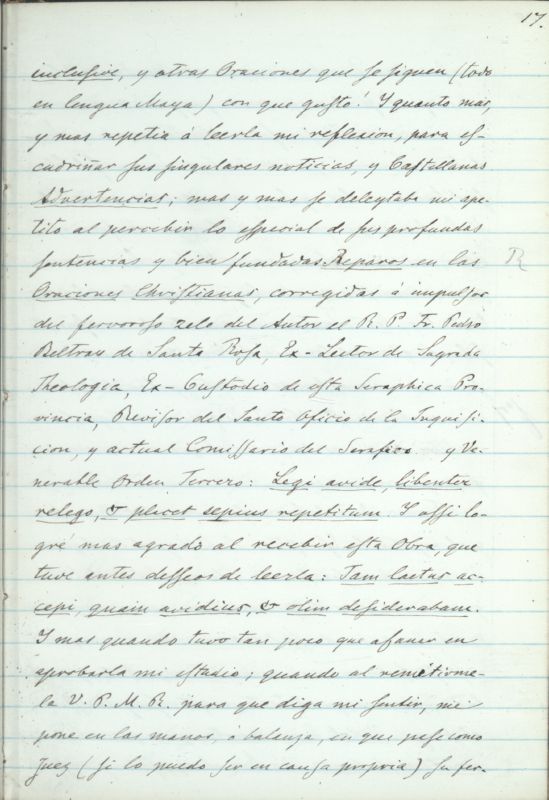 17.
inclusive, y otras Oraciones que se siguen (todo
en lengua Maya) con que gusto! Y quanto mas,
y mas repetia á leerla mi reflexion, para es-
cudriñar sus singulares noticias, y Castellanas
Advertencias; mas y mas se deleytaba mi ape-
tito al percebir lo especial de sus profundas
sentencias y bien fundadas Reparos en las
Oraciones Christianas, corregidas á impulsos
del fervoroso zelo del Autor el R. P. Fr. Pedro
Beltran de Santa Rosa, Ex-Lector de Sagrada
Theologia, Ex-Custodio de esta Seraphica Pro-
vincia, Revisor del Santo Oficio de la Inquisi-
cion, y actual Comissario del Serafico y Ve-
nerable Orden Tercero: Legi avide, libenter
relego, & placet sepius repetitum. Y assi lo-
gré mas agrado al recebir esta Obra, que
tuve antes desseos de leerla: Tam laetus ac-
cepi, quam avidius, & olim desiderabam.
Y mas quando tuvo tan poco que afanar en
aprobarla mi estudio; quando al remitirme-
la V. P. M. R. para que diga mi sentir, me
pone en las manos, ó balanza, en que pese como
Juez (si lo puedo ser en causa propria) su fer-